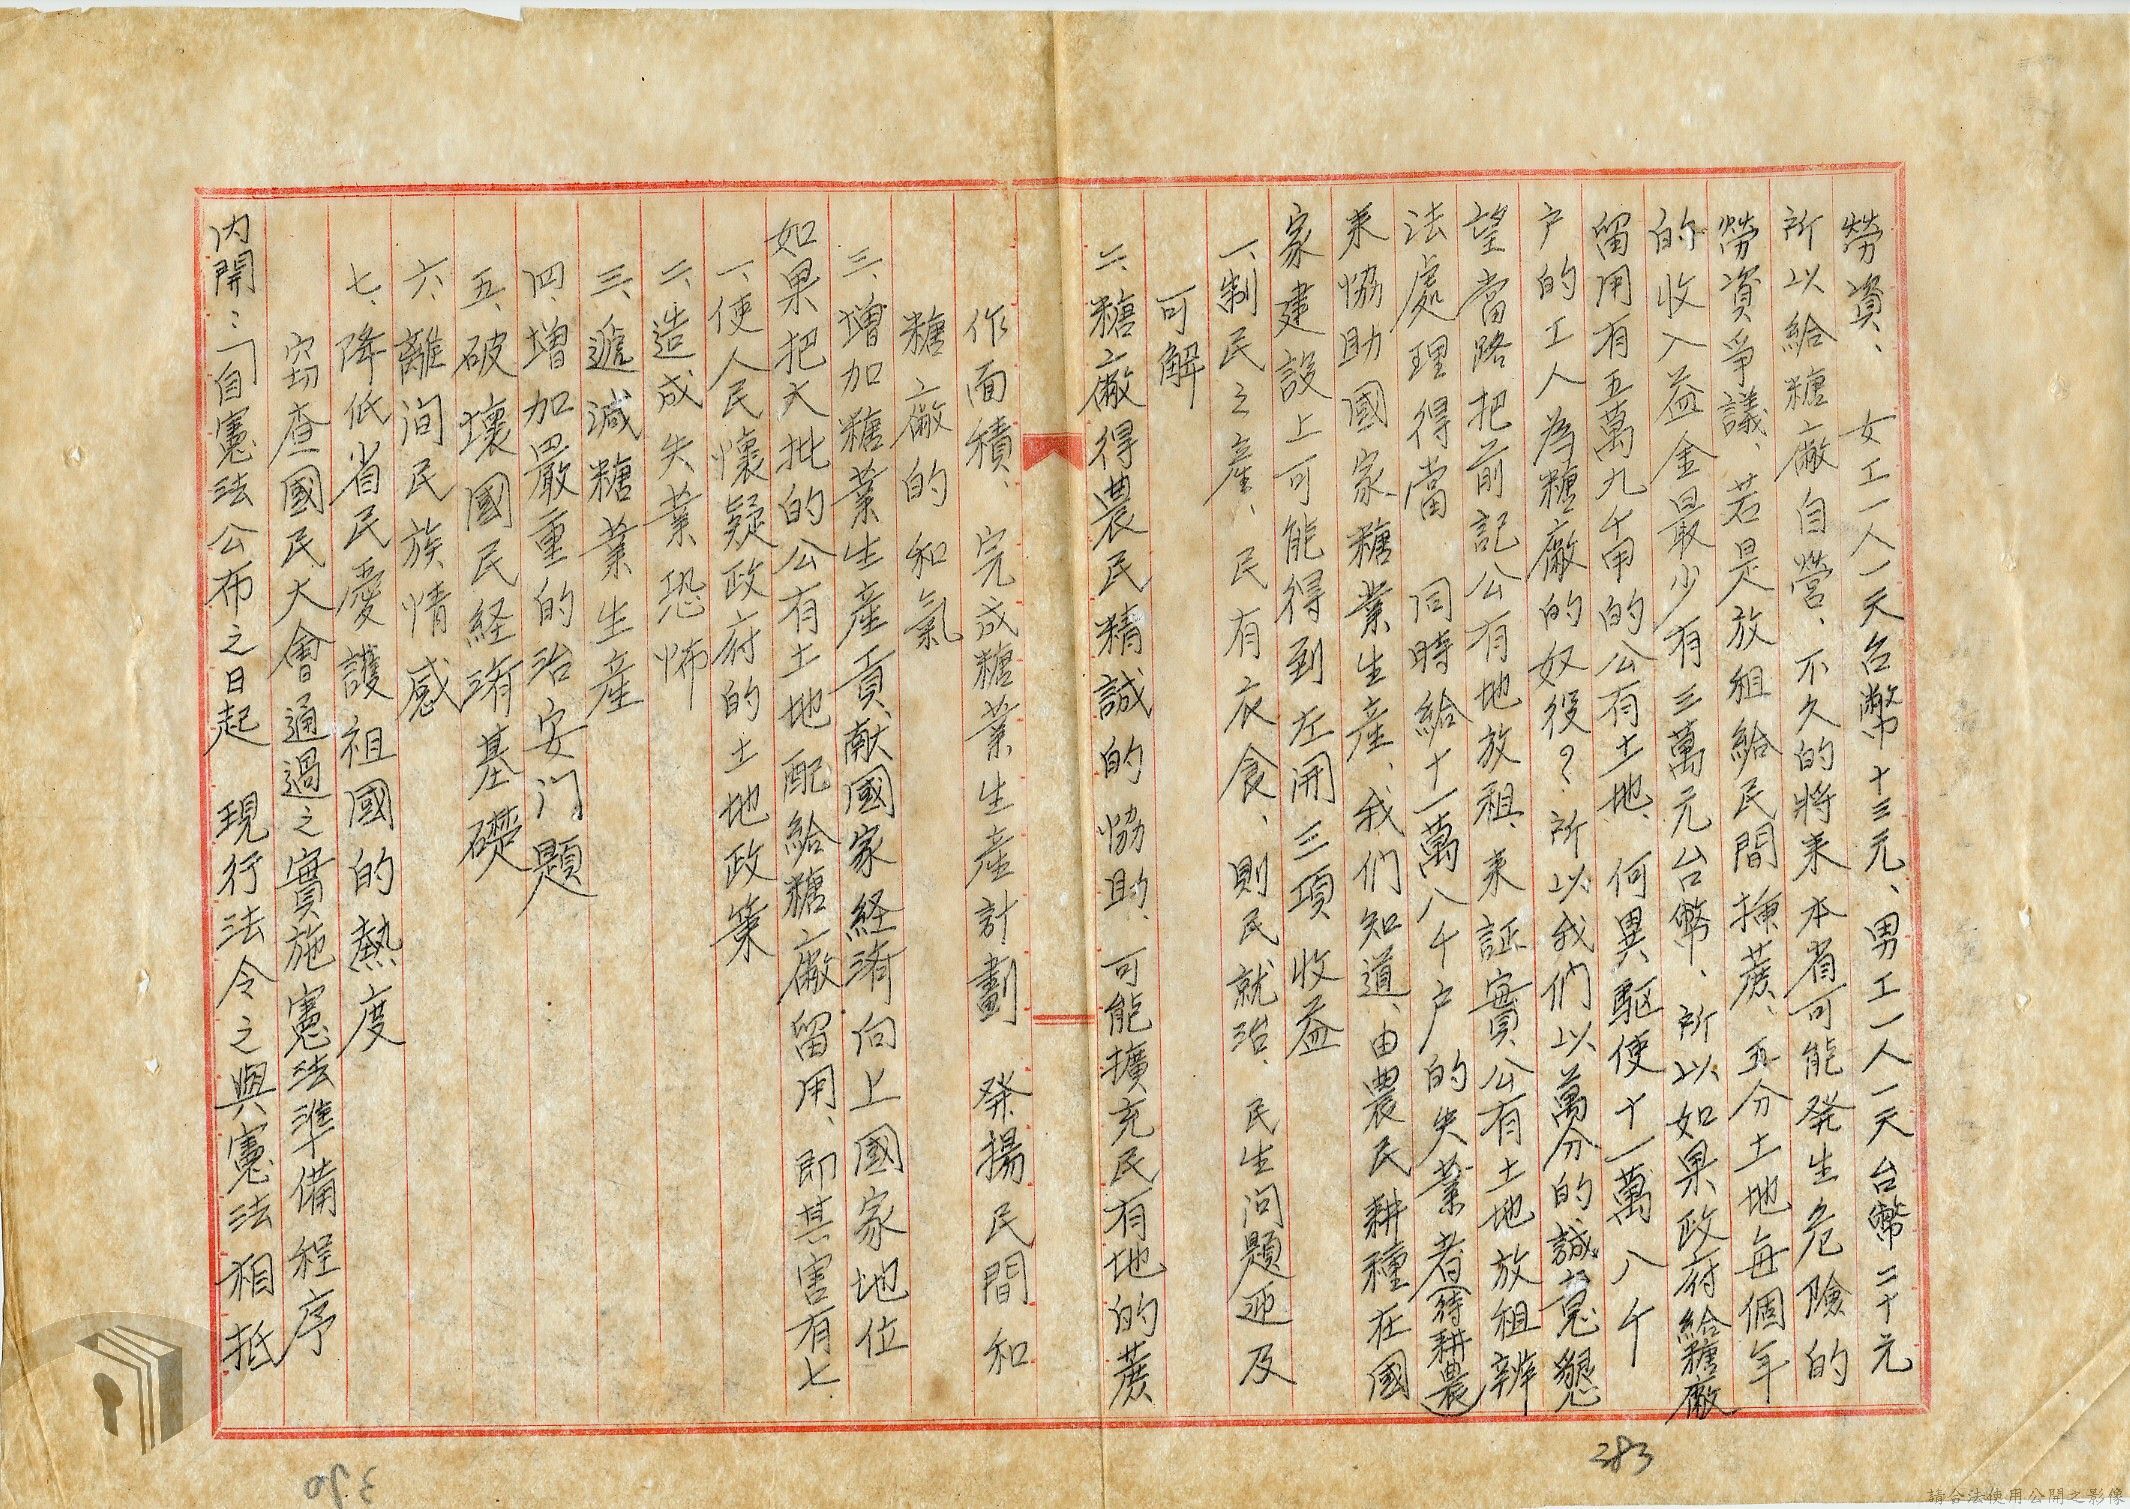 勞資、　女工一人一天台幣十三元、男工一人一天台幣二十元
所以給糖廠自營、不久的將来本省可能発生危險的
勞資爭議、若是放租給民間捒蔗、五分土地每個年
的收入益金最少有三萬元台幣、所以如果政府給糖廠
留用有五萬九千甲的公有土地、何異驅使十一萬八千
户的工人為糖廠的奴役？所以我們以萬分的誠意懇
望當路把前記公有地放租、来証實公有土地放租辨
法處理得當　同時給十一萬八千户的失業者（待耕農）
来協助國家糖業生產、我们知道、由農民耕種在國
家建設上可能得到左開三項收益
一、制民之產、民有衣食、則民就治、民生问題迎及
可解
二、糖廠得農民精誠的協助、可能擴充民有地的蔗
作面積、完成糖業生産計劃　発揚民間和
糖廠的和氣
三、增加糖業生產貢献國家経済向上國家地位
如果把大批的公有土地配給糖廠留用、即其害有七、
一、使人民懷疑政府的土地政策
二、造成失業恐怖
三、遞減糖業生産
四、增加嚴重的治安门題
五、破壞國民経済基礎
六、離间民族情感
七、降低省民愛護祖國的熱度
窃查國民大會通過之實施憲法準備程序
内開：「自憲法公布之日起　現行法令之與憲法相抵
283
390
請合法使用公開之影像